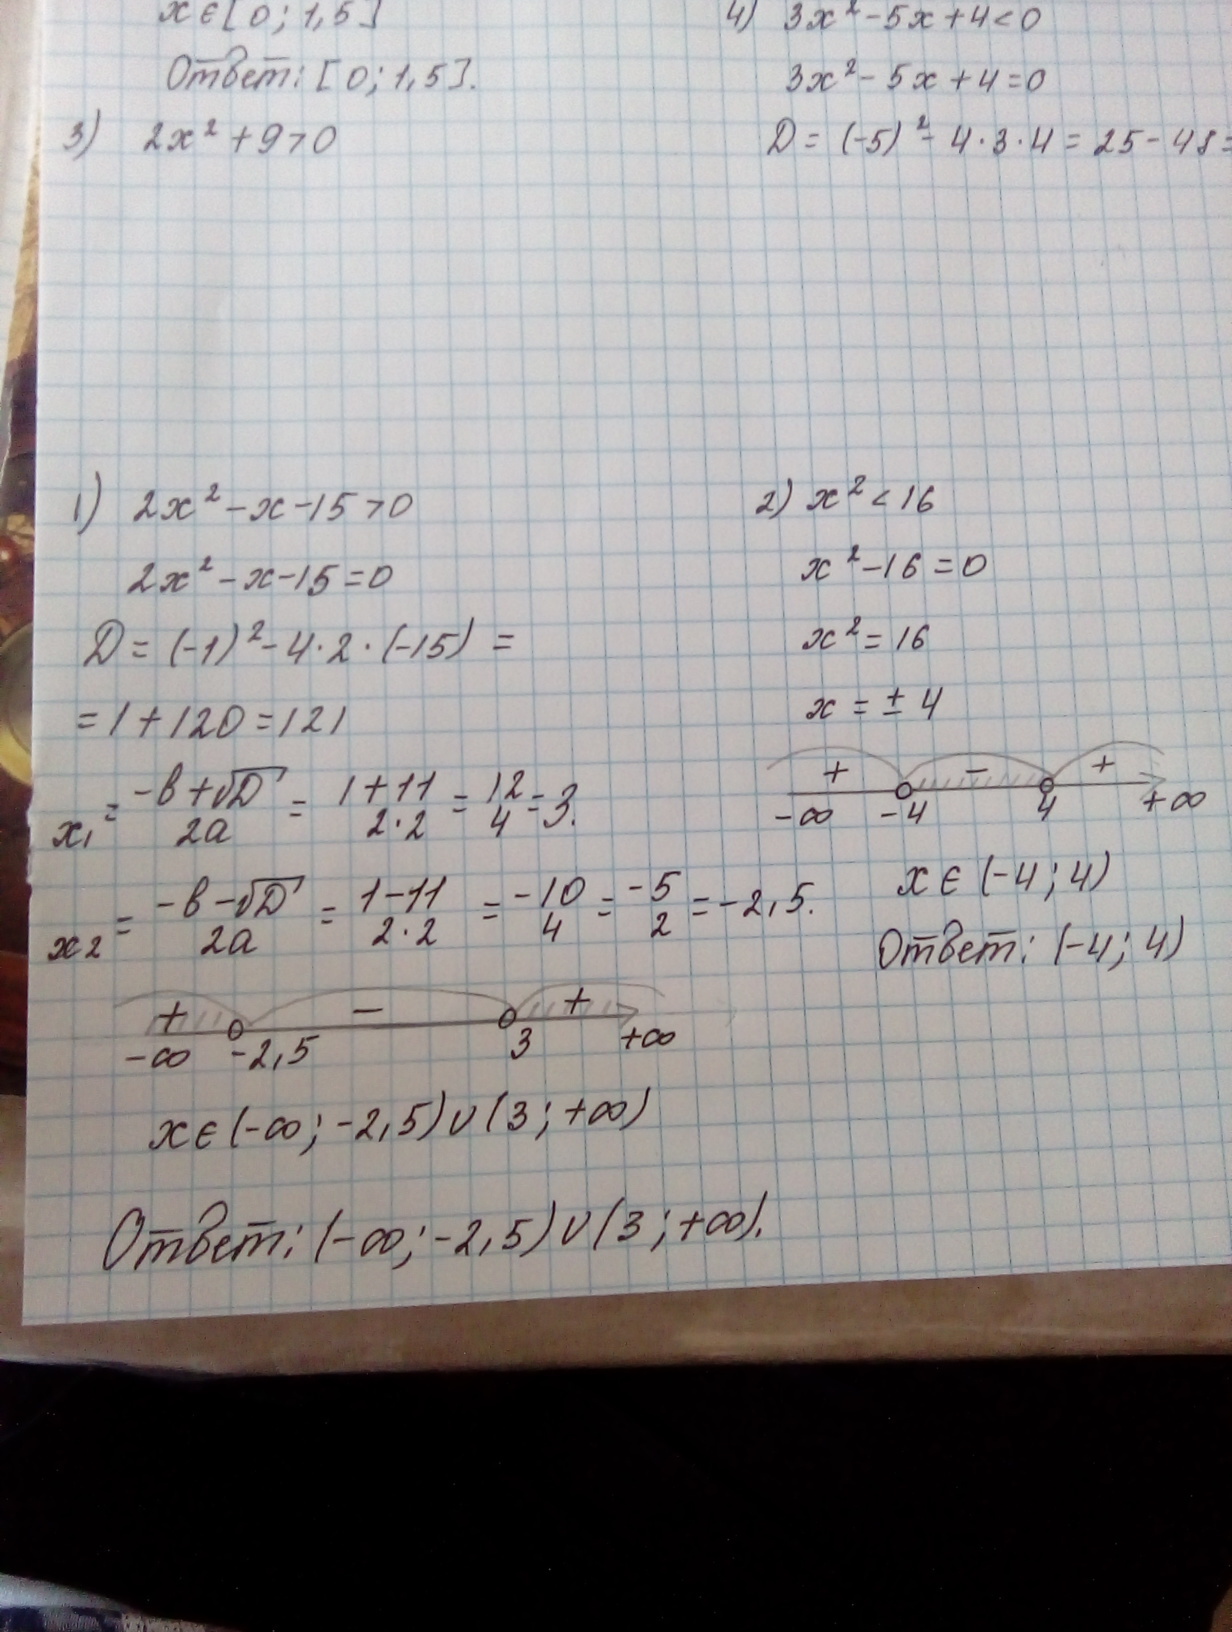 x ∈ [0; 1,5]
Ответ: [0; 1,5].
3) 2x² + 9 > 0
4) 3x² - 5x + 4 < 0
3x² - 5x + 4 = 0
D = (-5)² - 4·3·4 = 25 - 48 =
1) 2x² - x - 15 > 0
2x² - x - 15 = 0
D = (-1)² - 4·2·(-15) =
= 1 + 120 = 121
x₁ = (-b + √D)/2a = (1+11)/(2·2) = 12/4 = 3.
x₂ = (-b - √D)/2a = (1-11)/(2·2) = -10/4 = -5/2 = -2,5.
+ - +
-∞ -2,5 3 +∞
x ∈ (-∞; -2,5) ∪ (3; +∞)
Ответ: (-∞; -2,5) ∪ (3; +∞).
2) x² < 16
x² - 16 = 0
x² = 16
x = ± 4
+ - +
-∞ -4 4 +∞
x ∈ (-4; 4)
Ответ: (-4; 4)